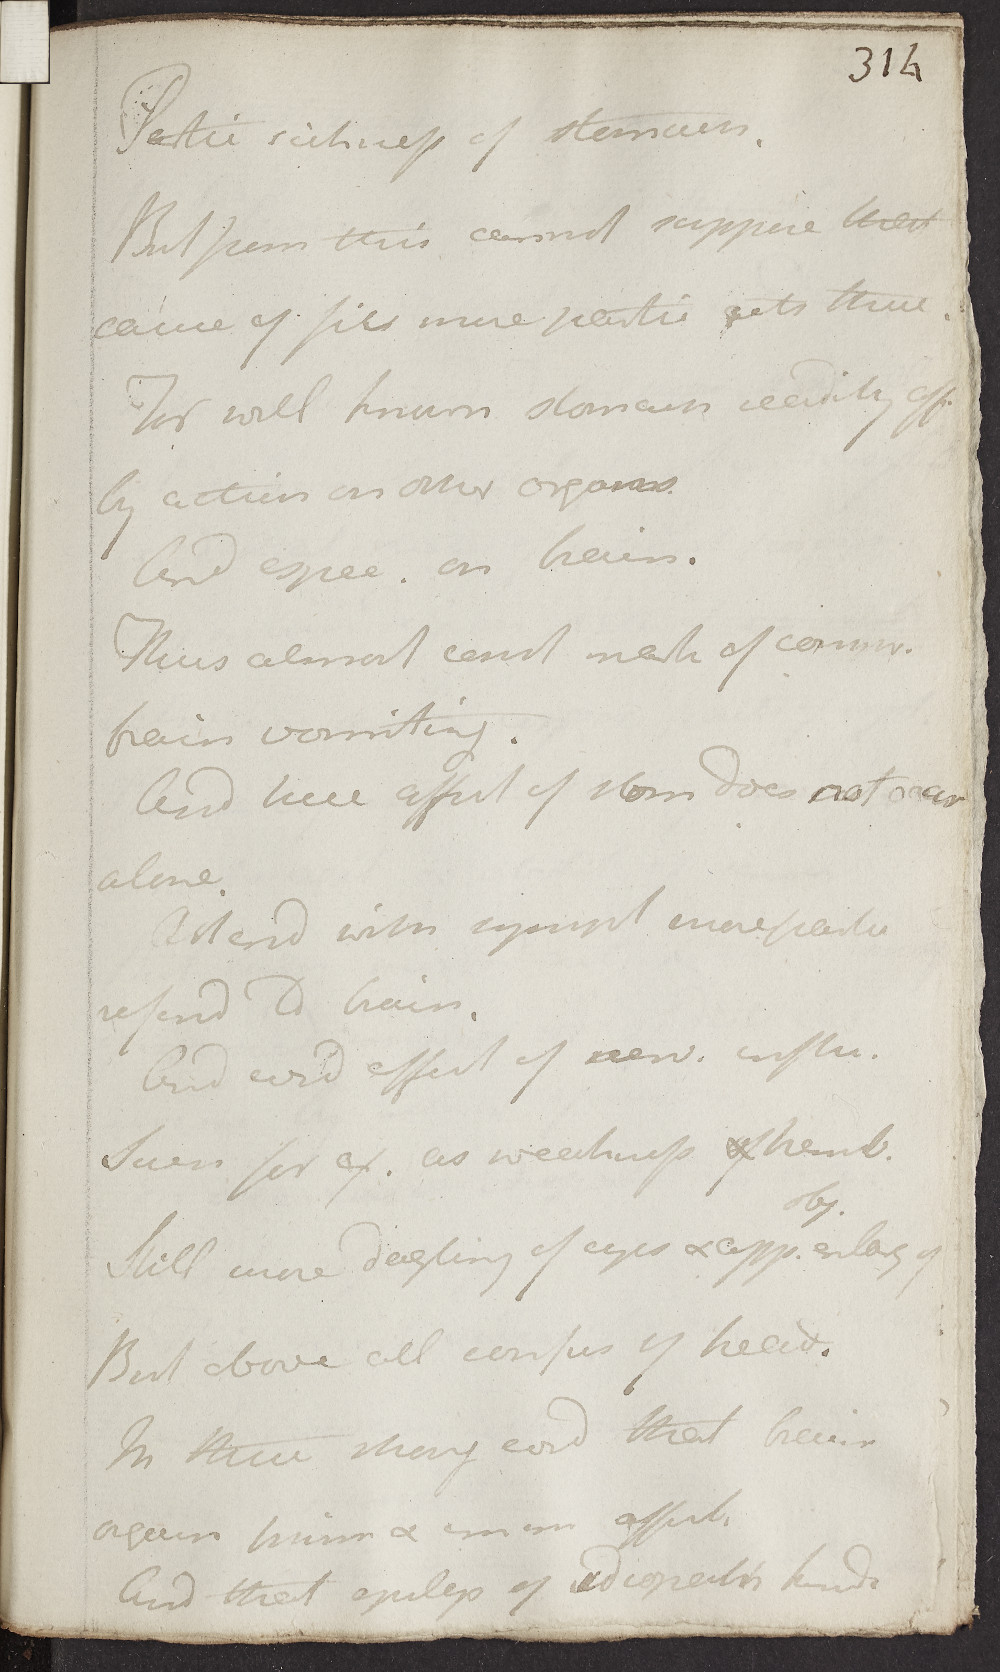 314
Partic sickness of stomach.
But from this cannot suppose that
cause of fits more partic acts there.
For well known stomach readily aff.
by action on other organs
And espec. on brain.
Thus almost const mark of comm.
brain vomiting.
And here affect of stom does not occur
alone.
Attend with sympt more partic
referd to brain.
And evid effect of nerv. influ.
Such for ex. as weakness of hemb.
Still more dazling of eyes & app. enlarg of
obj.
But above all confus of head.
In these strong evid that brain
organ prim & affect.
And that epileps of idiopath kind.